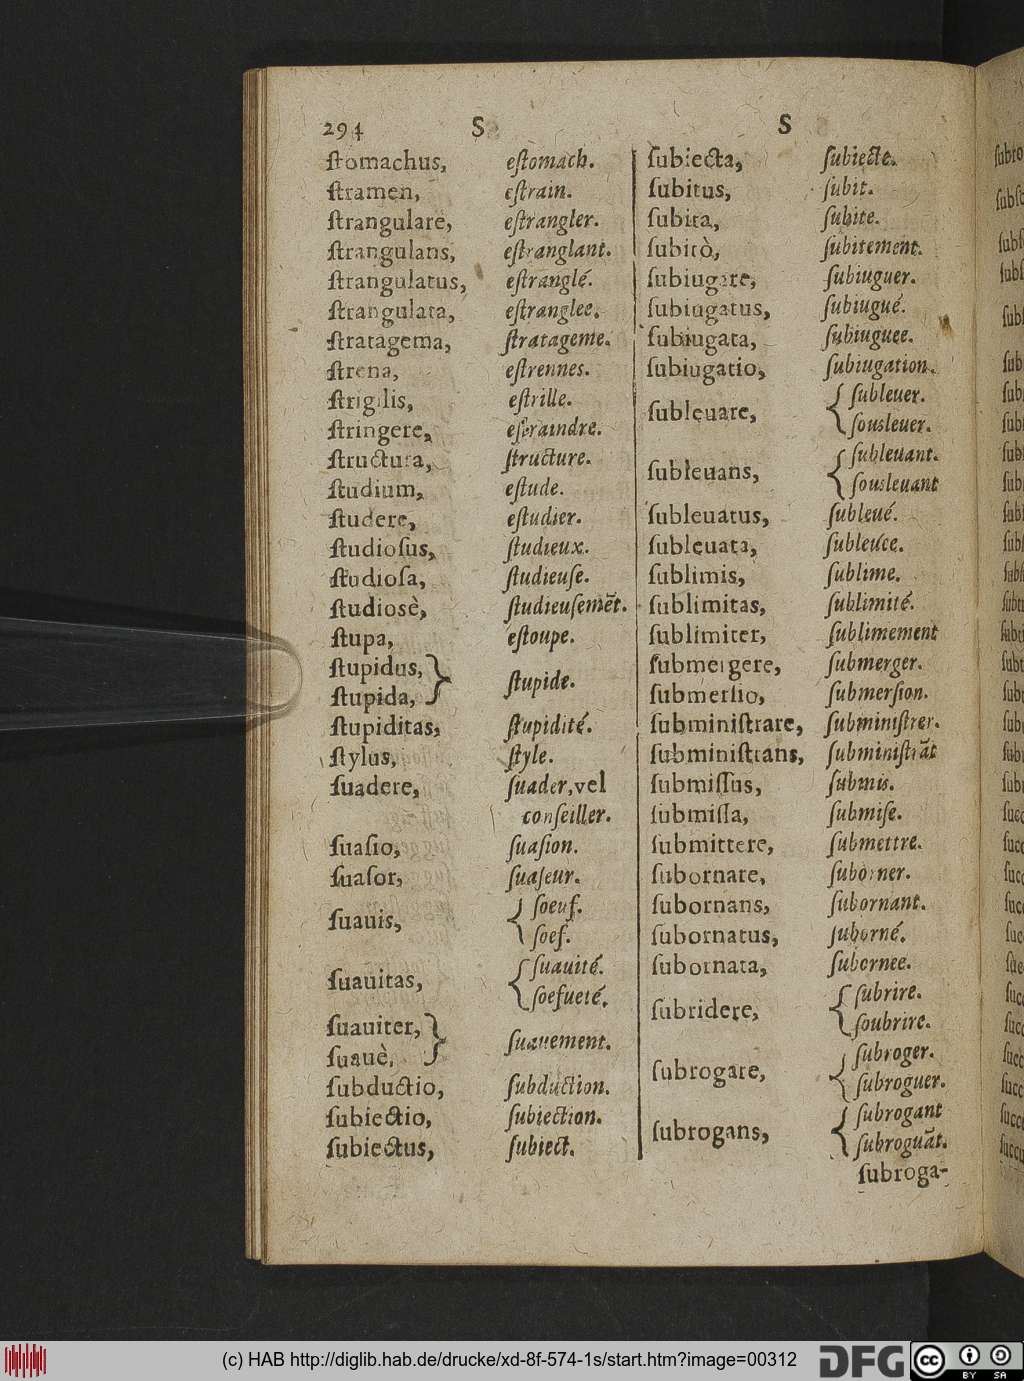 294 S S
ſtomachus, eſtomach.
ſtramen, eſtrain.
ſtrangulare, eſtrangler.
ſtrangulans, eſtranglant.
ſtrangulatus, eſtranglé.
ſtrangulata, eſtranglee.
ſtratagema, ſtratageme.
ſtrena, eſtrennes.
ſtrigilis, eſtrille.
ſtringere, eſtraindre.
ſtructura, ſtructure.
ſtudium, eſtude.
ſtudere, eſtudier.
ſtudioſus, ſtudieux.
ſtudioſa, ſtudieuſe.
ſtudiosè, ſtudieuſemẽt.
ſtupa, eſtoupe.
ſtupidus,
ſtupida, } ſtupide.
ſtupiditas, ſtupidité.
ſtylus, ſtyle.
ſuadere, ſuader, vel
conſeiller.
ſuaſio, ſuaſion.
ſuaſor, ſuaſeur.
ſuauis, { ſoeuf.
ſoef.
ſuauitas, { ſuauité.
ſoefueté.
ſuauiter,
ſuauè, } ſuauement.
ſubductio, ſubduction.
ſubiectio, ſubiection.
ſubiectus, ſubiect.
ſubiecta, ſubiecte.
ſubitus, ſubit.
ſubita, ſubite.
ſubitò, ſubitement.
ſubiugare, ſubiuguer.
ſubiugatus, ſubiugué.
ſubiugata, ſubiuguee.
ſubiugatio, ſubiugation.
ſubleuare, { ſubleuer.
ſousleuer.
ſubleuans, { ſubleuant.
ſousleuant
ſubleuatus, ſubleué.
ſubleuata, ſubleuee.
ſublimis, ſublime.
ſublimitas, ſublimité.
ſublimiter, ſublimement
ſubmergere, ſubmerger.
ſubmerſio, ſubmerſion.
ſubminiſtrare, ſubminiſtrer.
ſubminiſtrans, ſubminiſtrãt
ſubmiſſus, ſubmis.
ſubmiſſa, ſubmiſe.
ſubmittere, ſubmettre.
ſubornare, ſuborner.
ſubornans, ſubornant.
ſubornatus, ſuborné.
ſubornata, ſubornee.
ſubridere, { ſubrire.
ſoubrire.
ſubrogare, { ſubroger.
ſubroguer.
ſubrogans, { ſubrogant
ſubroguãt.
ſubroga-
(c) HAB http://diglib.hab.de/drucke/xd-8f-574-1s/start.htm?image=00312 DFG cc BY SA